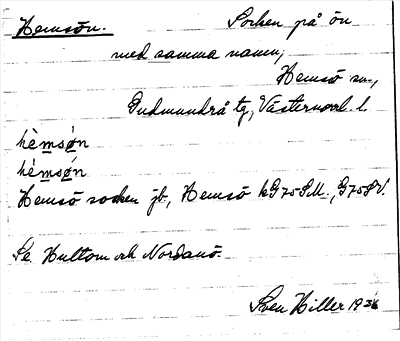 Hemsön. Socken på ön
med samma namn,
Hemsö sn.,
Gudmundrå tg, Västernorrl. l.
hèmsøn
hémsøn
Hemsö socken jb., Hemsö kG 75 SM., G 75 SV.
Se Hultom och Nordanö.
Sven Hiller 1936